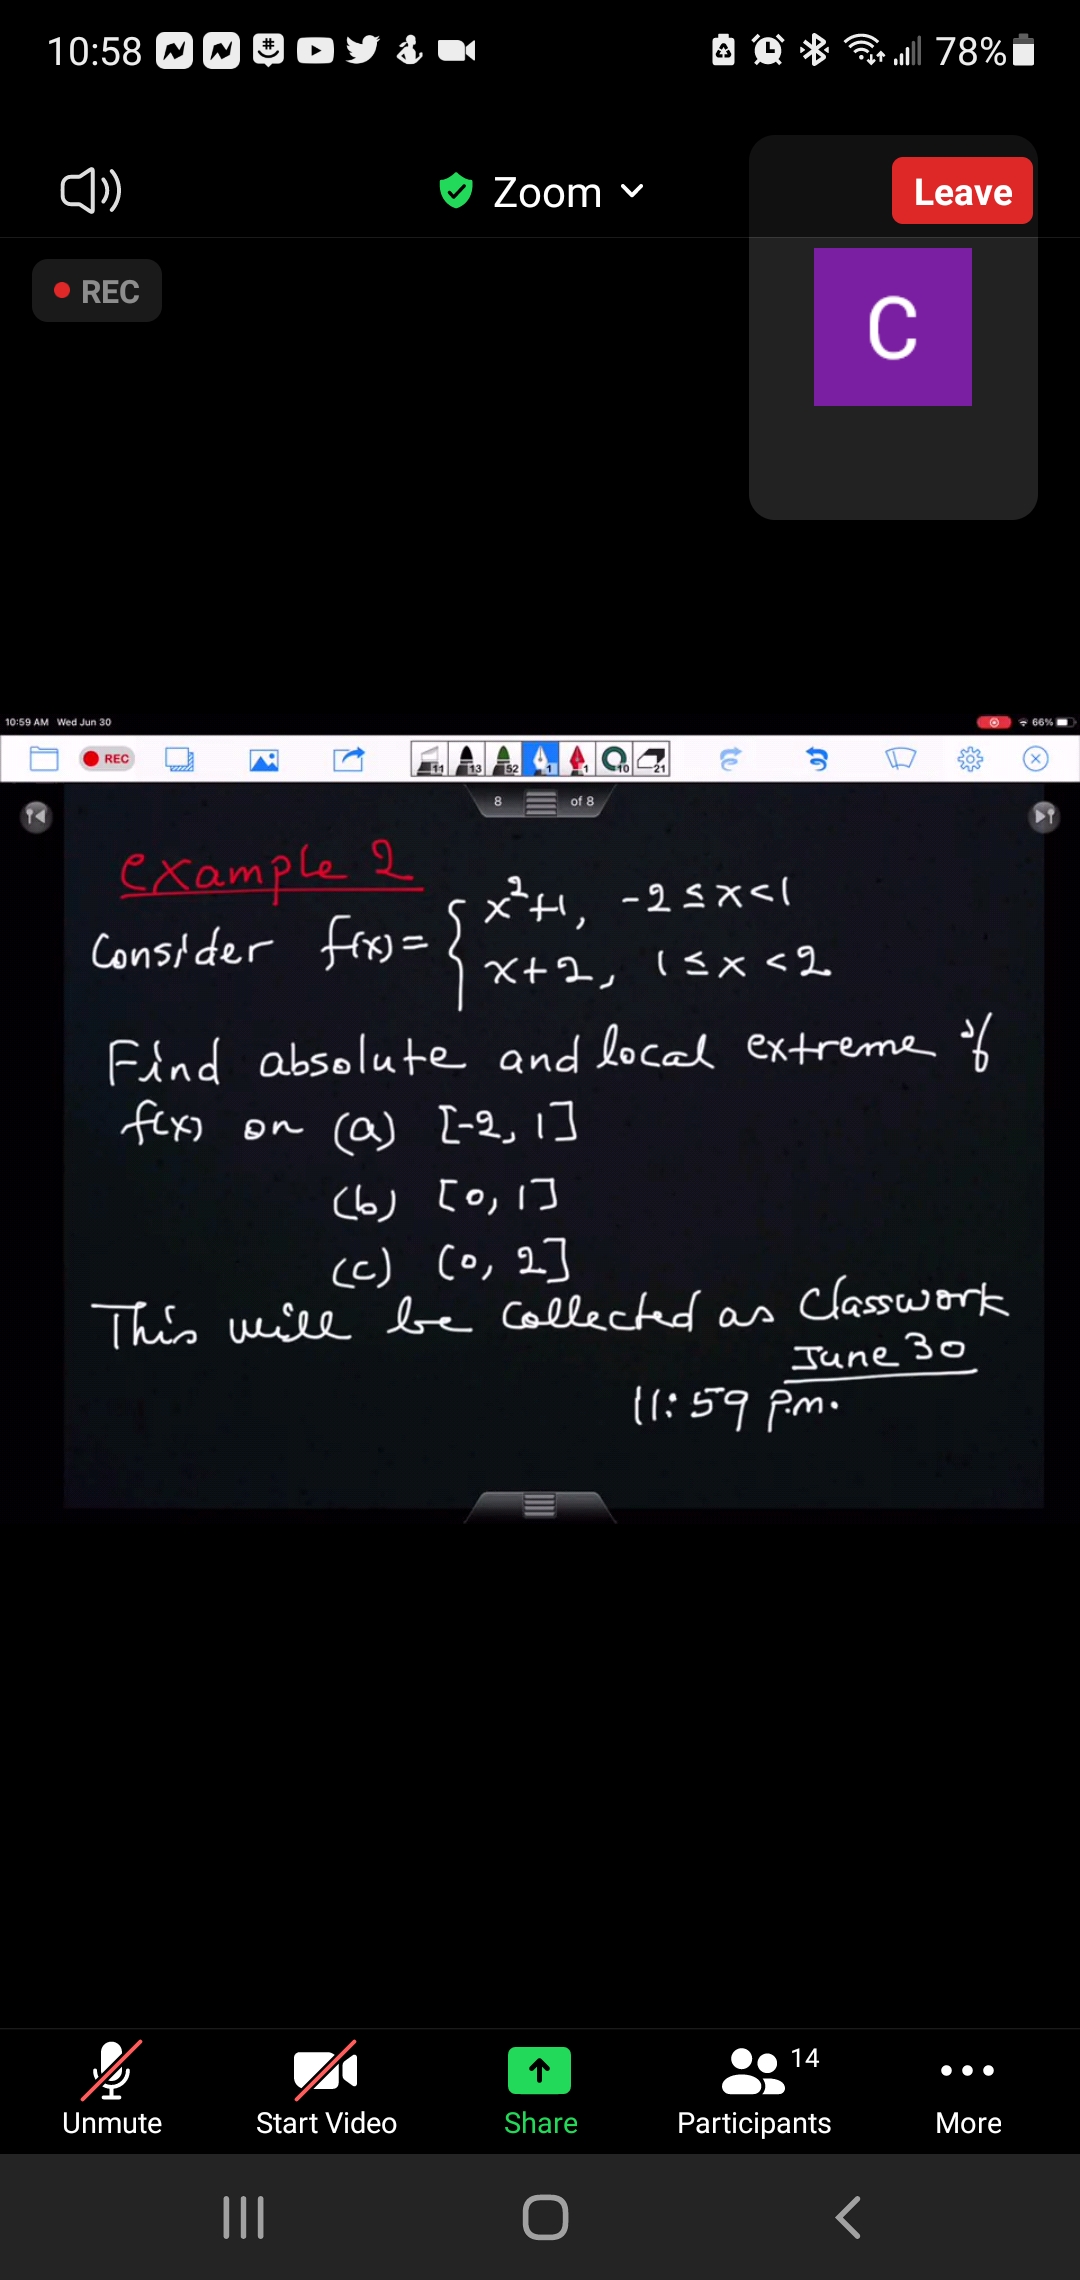 10:58
78%
Zoom
Leave
REC
C
10:59 AM Wed Jun 30
66%
REC
11 13 52 1 1 10 21
8 of 8
example 2
Consider f(x) = { x²+1, -2 ≤ x < 1
x+2, 1 ≤ x < 2
Find absolute and local extreme of
f(x) on (a) [-2, 1]
(b) [0, 1]
(c) (0, 2]
This will be collected as Classwork
June 30
11:59 p.m.
14
Unmute Start Video Share Participants More